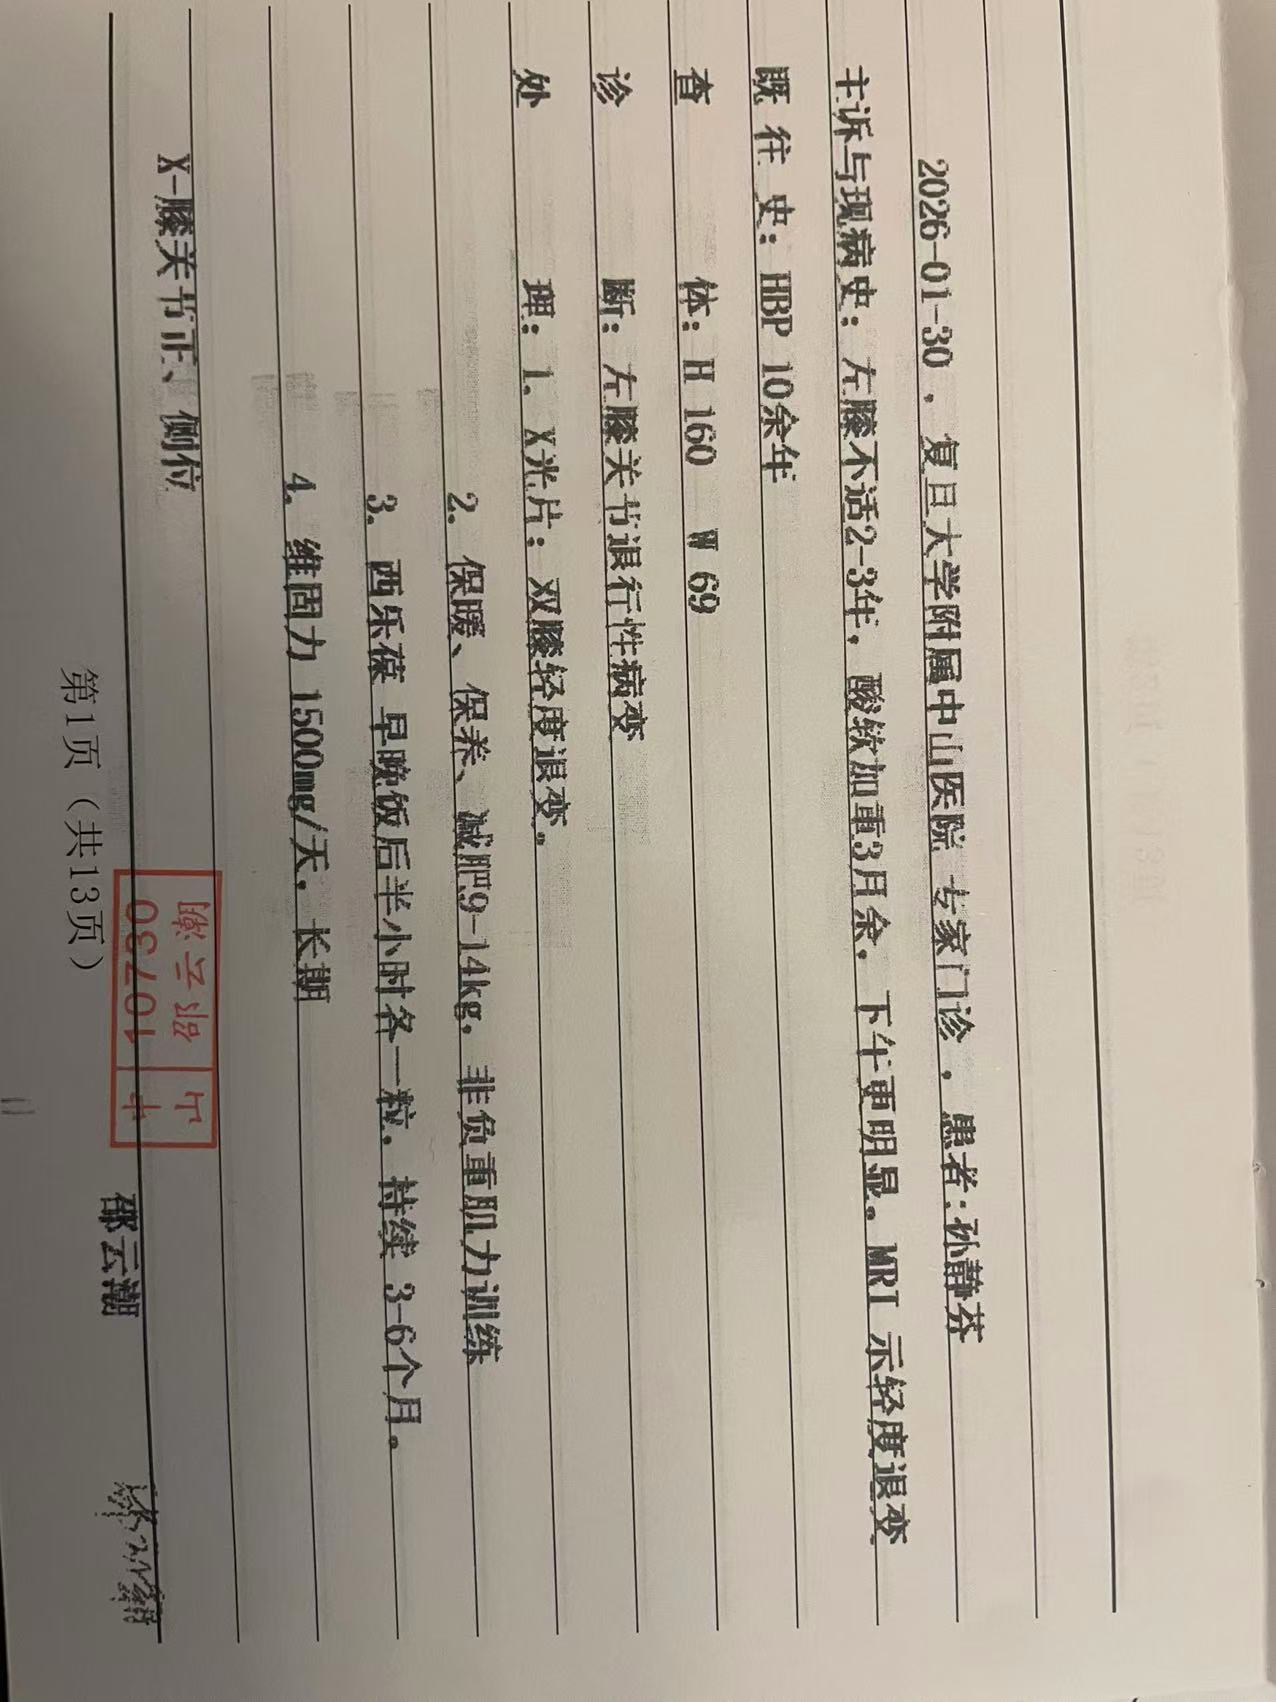 2026-01-30 ，复旦大学附属中山医院 专家门诊 ，患者:孙静芬
主诉与现病史：左膝不适2-3年，酸软加重3月余，下午更明显。MRI 示轻度退变
既 往 史：HBP 10余年
查 体：H 160 W 69
诊 断：左膝关节退行性病变
处 理：1. X光片：双膝轻度退变。
2. 保暖、保养、减肥9-14kg，非负重肌力训练
3. 西乐葆 早晚饭后半小时各一粒，持续 3-6个月。
4. 维固力 1500mg/天，长期
X-膝关节正、侧位
邵云潮
10730
第1页（共13页）